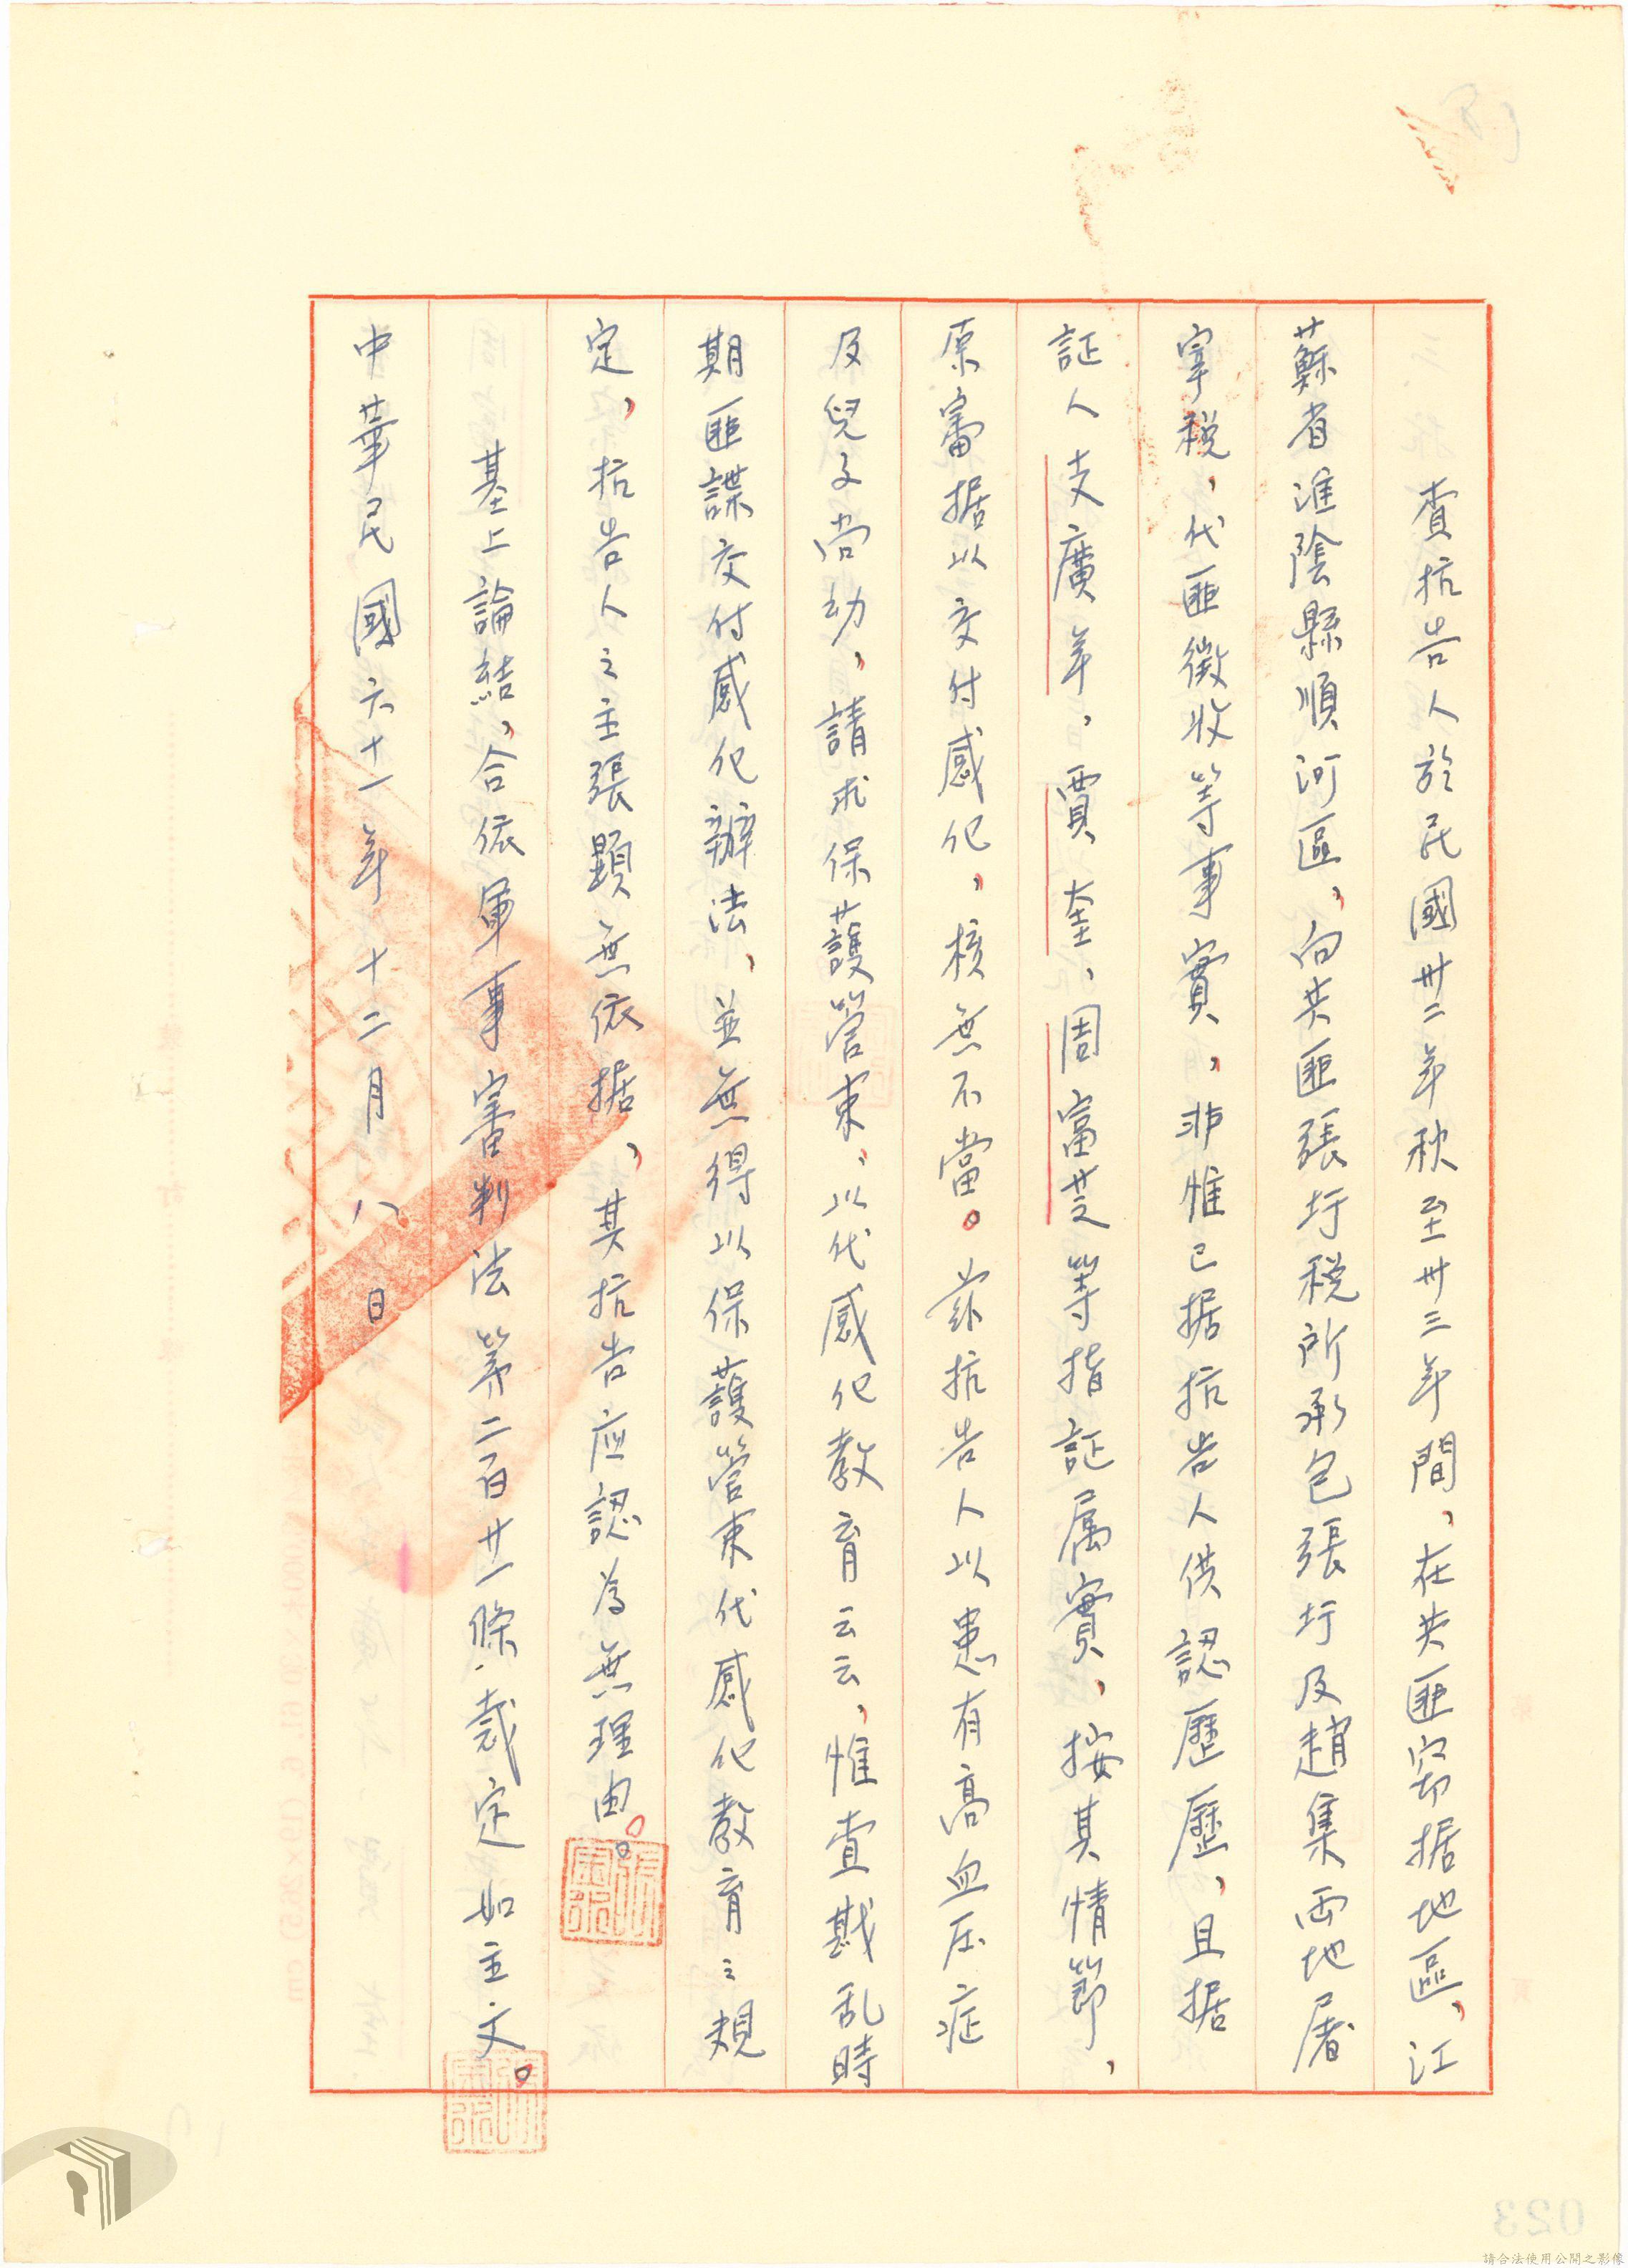 查抗告人於民國卅二年秋至卅三年間、在共匪窃据地區、江
蘇省淮陰縣順河區、向共匪張圩稅所承包張圩及趙集両地屠
宰稅、代匪徵收等事實、非惟已据抗告人供認歷歷、且据
証人支廣年、賈奎、周富芝等指証属實、按其情節、
原審据以交付感化、核無不當。茲抗告人以患有高血压症
及兒子尚幼、請求保護管束、以代感化教育云云、惟查戡乱時
期匪諜交付感化辦法、並無得以保護管束代感化教育之規
定、抗告人之主張顯無依据、其抗告应認為無理由。
基上論結、合依軍事審判法第二百廿一條、裁定如主文。
中華民國六十一年十二月八日
023
請合法使用公開之影像